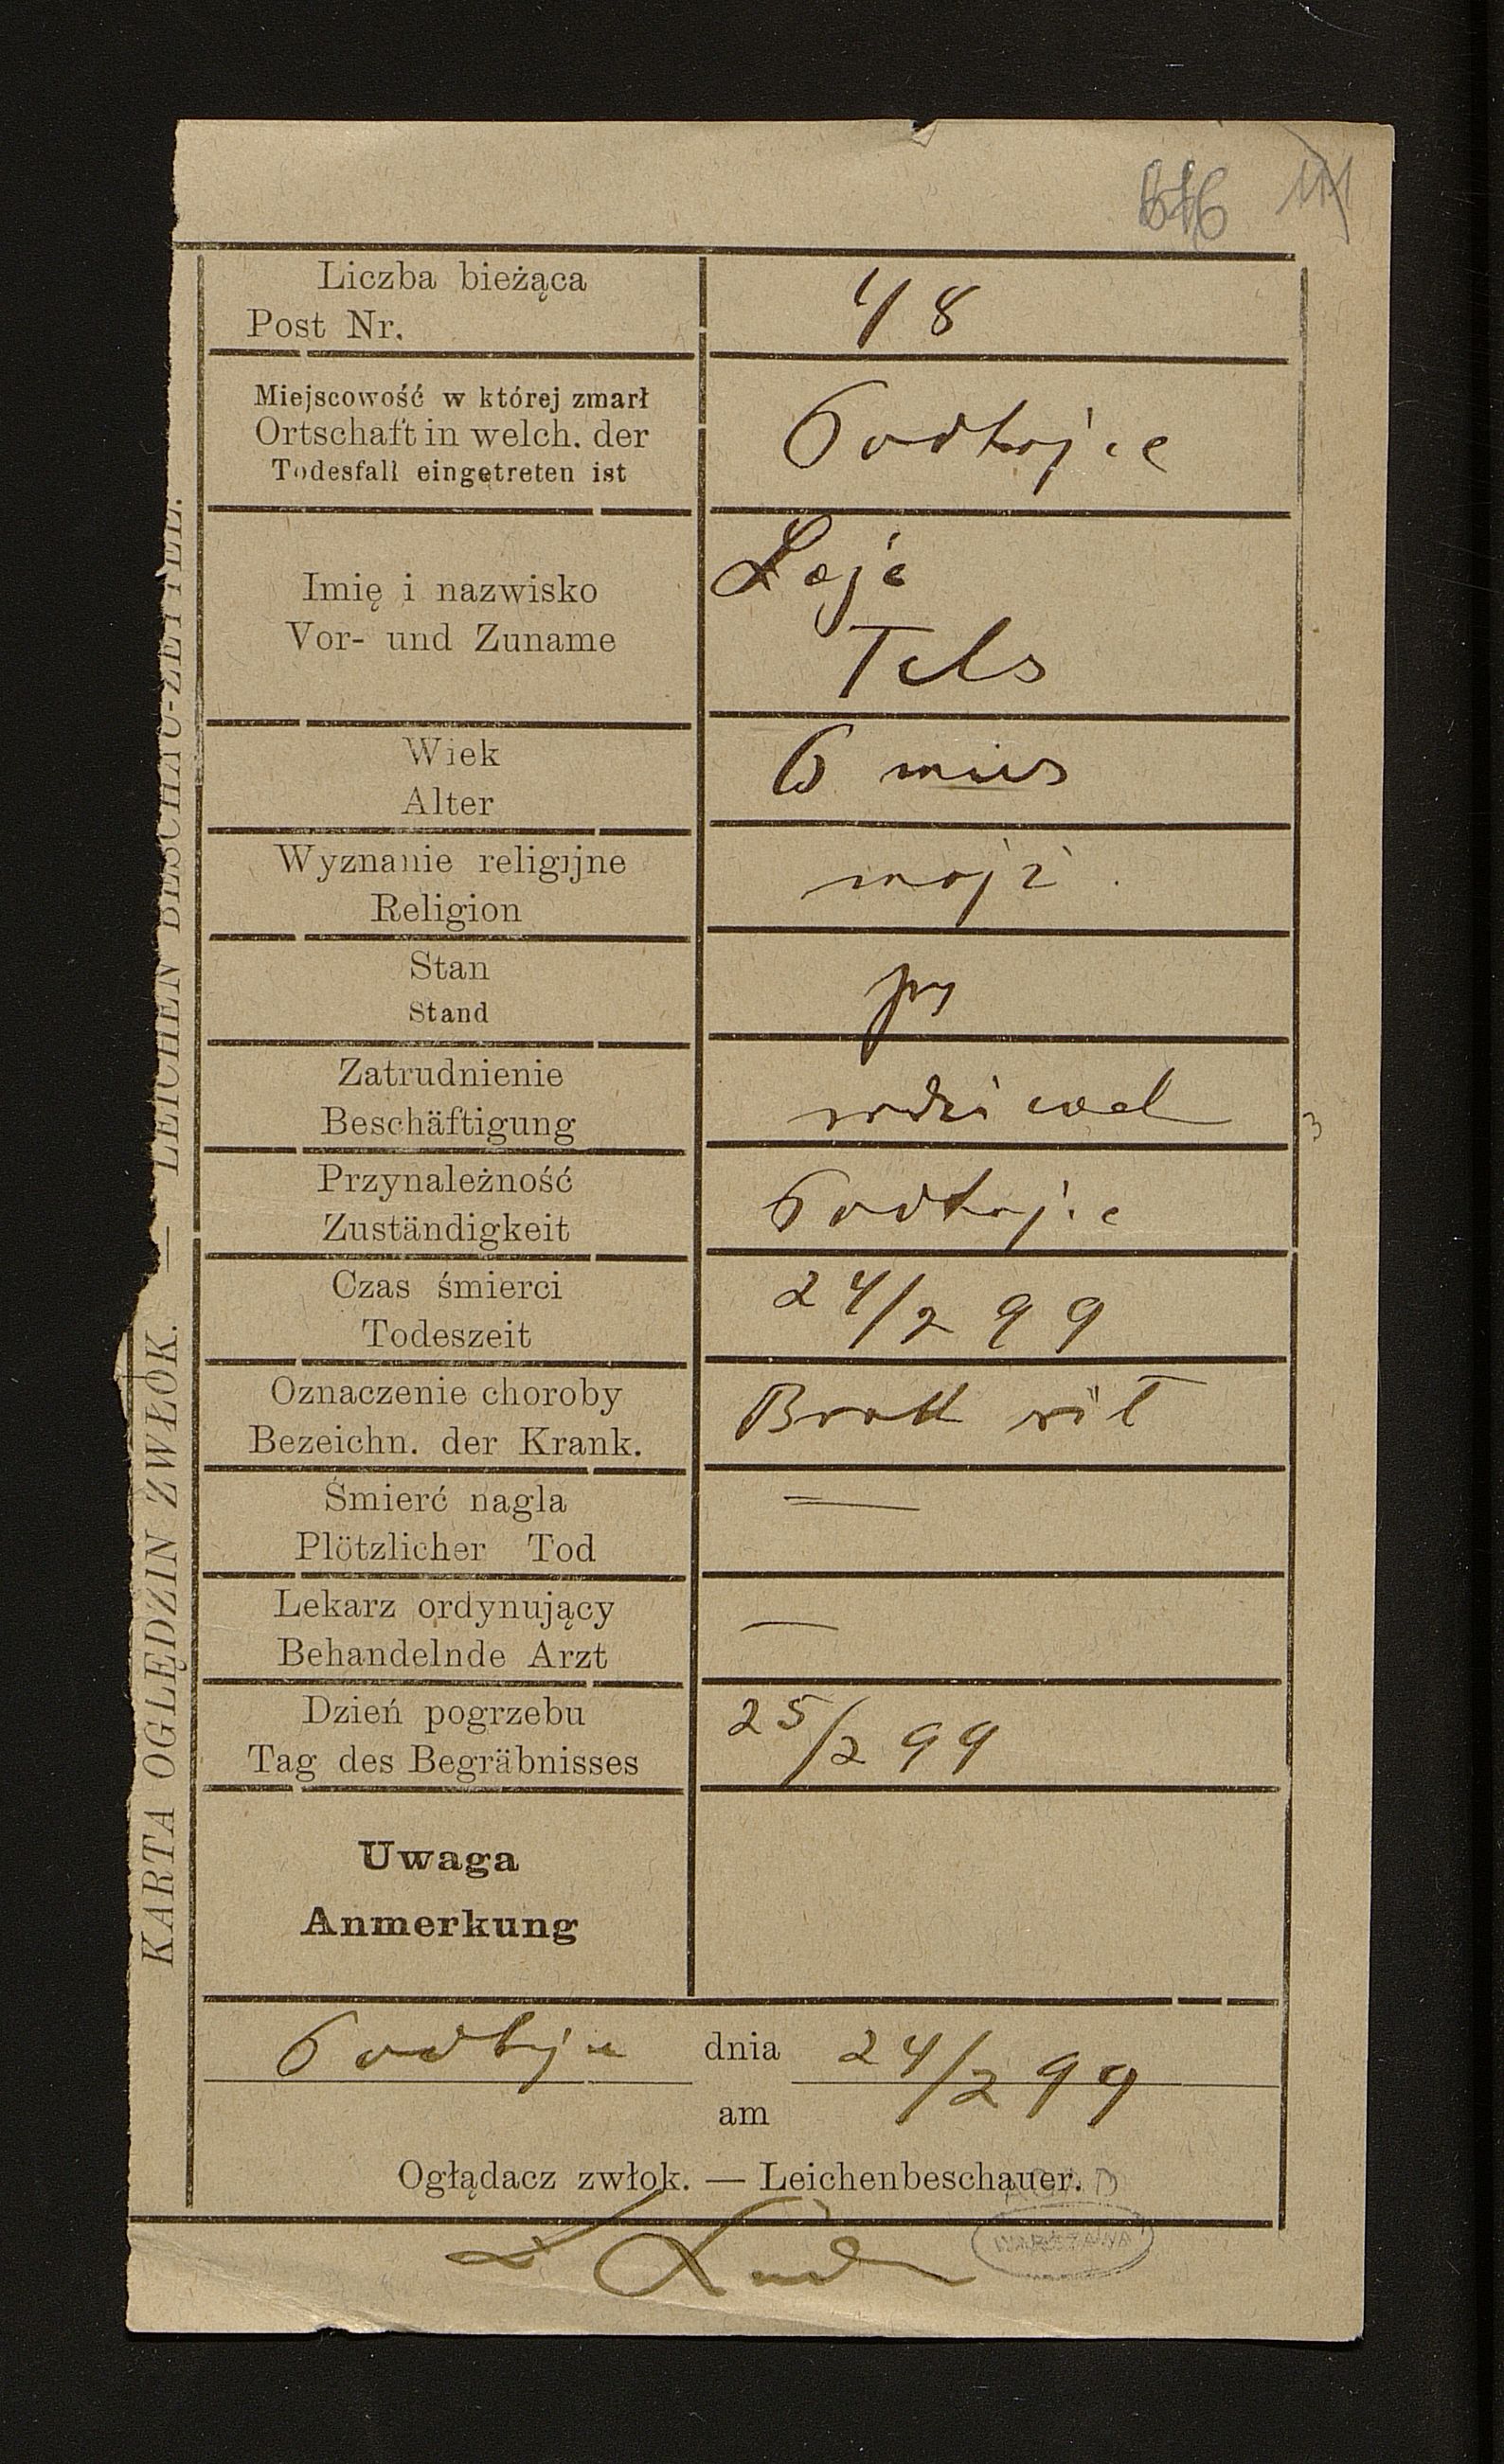 Liczba bieżąca
Post Nr.
48
Miejscowość w której zmarł
Ortschaft in welch. der
Todesfall eingetreten ist
Podhajce
Imię i nazwisko
Vor- und Zuname
Laje
Tels
Wiek
Alter
6 mies
Wyznanie religijne
Religion
mojż.
Stan
Stand
Zatrudnienie
Beschäftigung
Przynależność
Zuständigkeit
Podhajce
Czas śmierci
Todeszeit
24/2 99
Oznaczenie choroby
Bezeichn. der Krank.
Brak sił
Śmierć nagla
Plötzlicher Tod
—
Lekarz ordynujący
Behandelnde Arzt
—
Dzień pogrzebu
Tag des Begräbnisses
25/2 99
Uwaga
Anmerkung
Podhajce dnia 24/2 99
am
Oglądacz zwłok. — Leichenbeschauer.
AGAD
WARSZAWA
KARTA OGLĘDZIN ZWŁOK. — LEICHEN BESCHAU-ZETTEL.